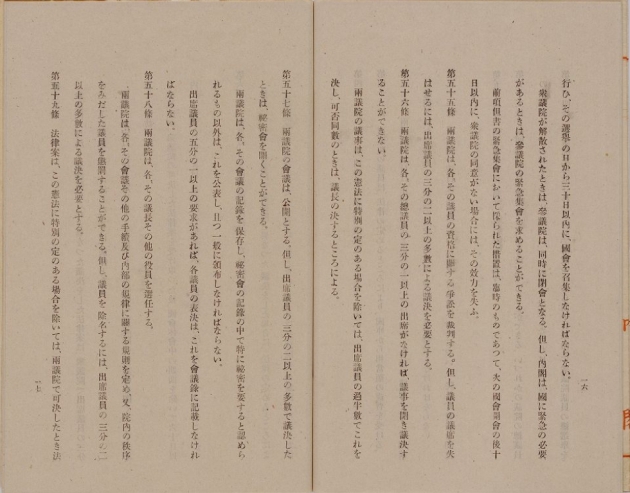 行ひ、その選擧の日から三十日以内に、國會を召集しなければならない。
衆議院が解散されたときは、參議院は、同時に閉會となる。但し、内閣は、國に緊急の必要
があるときは、參議院の緊急集會を求めることができる。
前項但書の緊急集會において採られた措置は、臨時のものであつて、次の國會開會の後十
日以内に、衆議院の同意がない場合には、その效力を失ふ。
第五十五條　兩議院は、各〻その議員の資格に關する爭訟を裁判する。但し、議員の議席を失
はせるには、出席議員の三分の二以上の多數による議決を必要とする。
第五十六條　兩議院は、各〻その總議員の三分の一以上の出席がなければ、議事を開き議決す
ることができない。
兩議院の議事は、この憲法に特別の定のある場合を除いては、出席議員の過半數でこれを
決し、可否同數のときは、議長の決するところによる。
一六
第五十七條　兩議院の會議は、公開とする。但し、出席議員の三分の二以上の多數で議決した
ときは、祕密會を開くことができる。
兩議院は、各〻その會議の記錄を保存し、祕密會の記錄の中で特に祕密を要すると認めら
れるもの以外は、これを公表し、且つ一般に頒布しなければならない。
出席議員の五分の一以上の要求があれば、各議員の表決は、これを會議錄に記載しなけれ
ばならない。
第五十八條　兩議院は、各〻その議長その他の役員を選任する。
兩議院は、各〻その會議その他の手續及び内部の規律に關する規則を定め、又、院内の秩序
をみだした議員を懲罰することができる。但し、議員を除名するには、出席議員の三分の二
以上の多數による議決を必要とする。
第五十九條　法律案は、この憲法に特別の定のある場合を除いては、兩議院で可決したとき法
一七